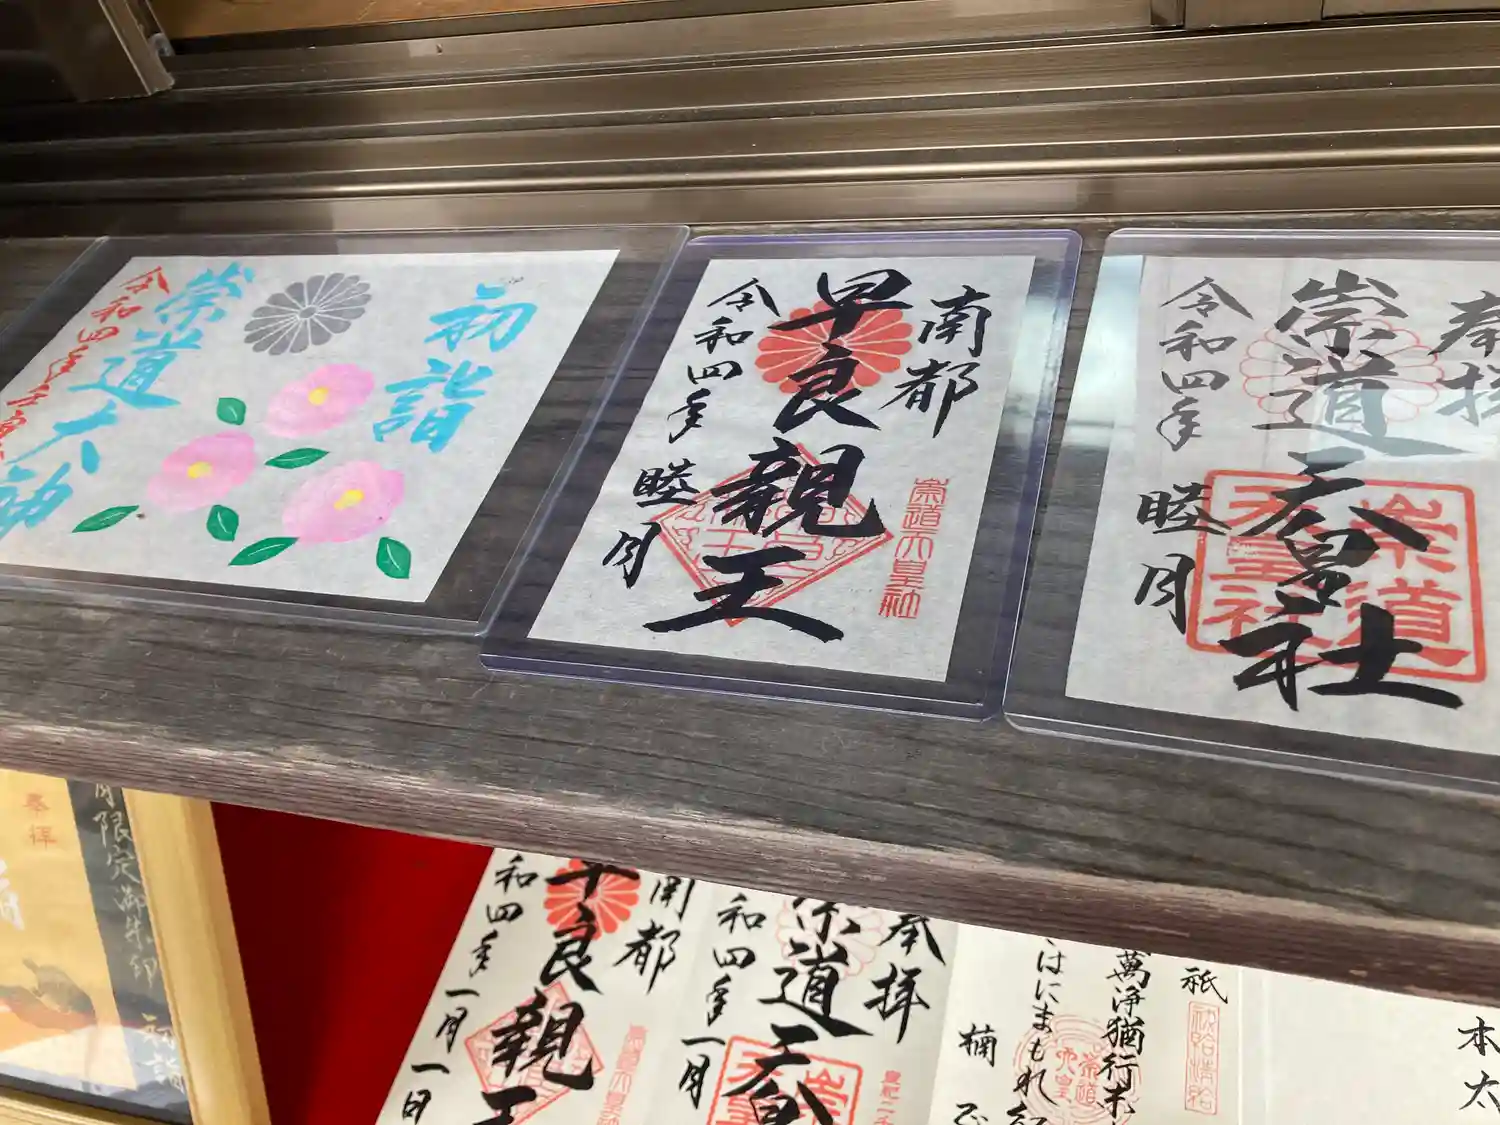 初詣
崇道大神
令和四年
南都
早良親王
令和四年
睦月
崇道天皇社
奉拝
崇道天皇社
令和四年
睦月
崇道天皇社
奉拝
月限定御朱印
初詣
南都
早良親王
和四年一月一日
奉拝
崇道天皇
和四年一月
祇
萬浄猶行末
はにまもれ
楠
正
本
太